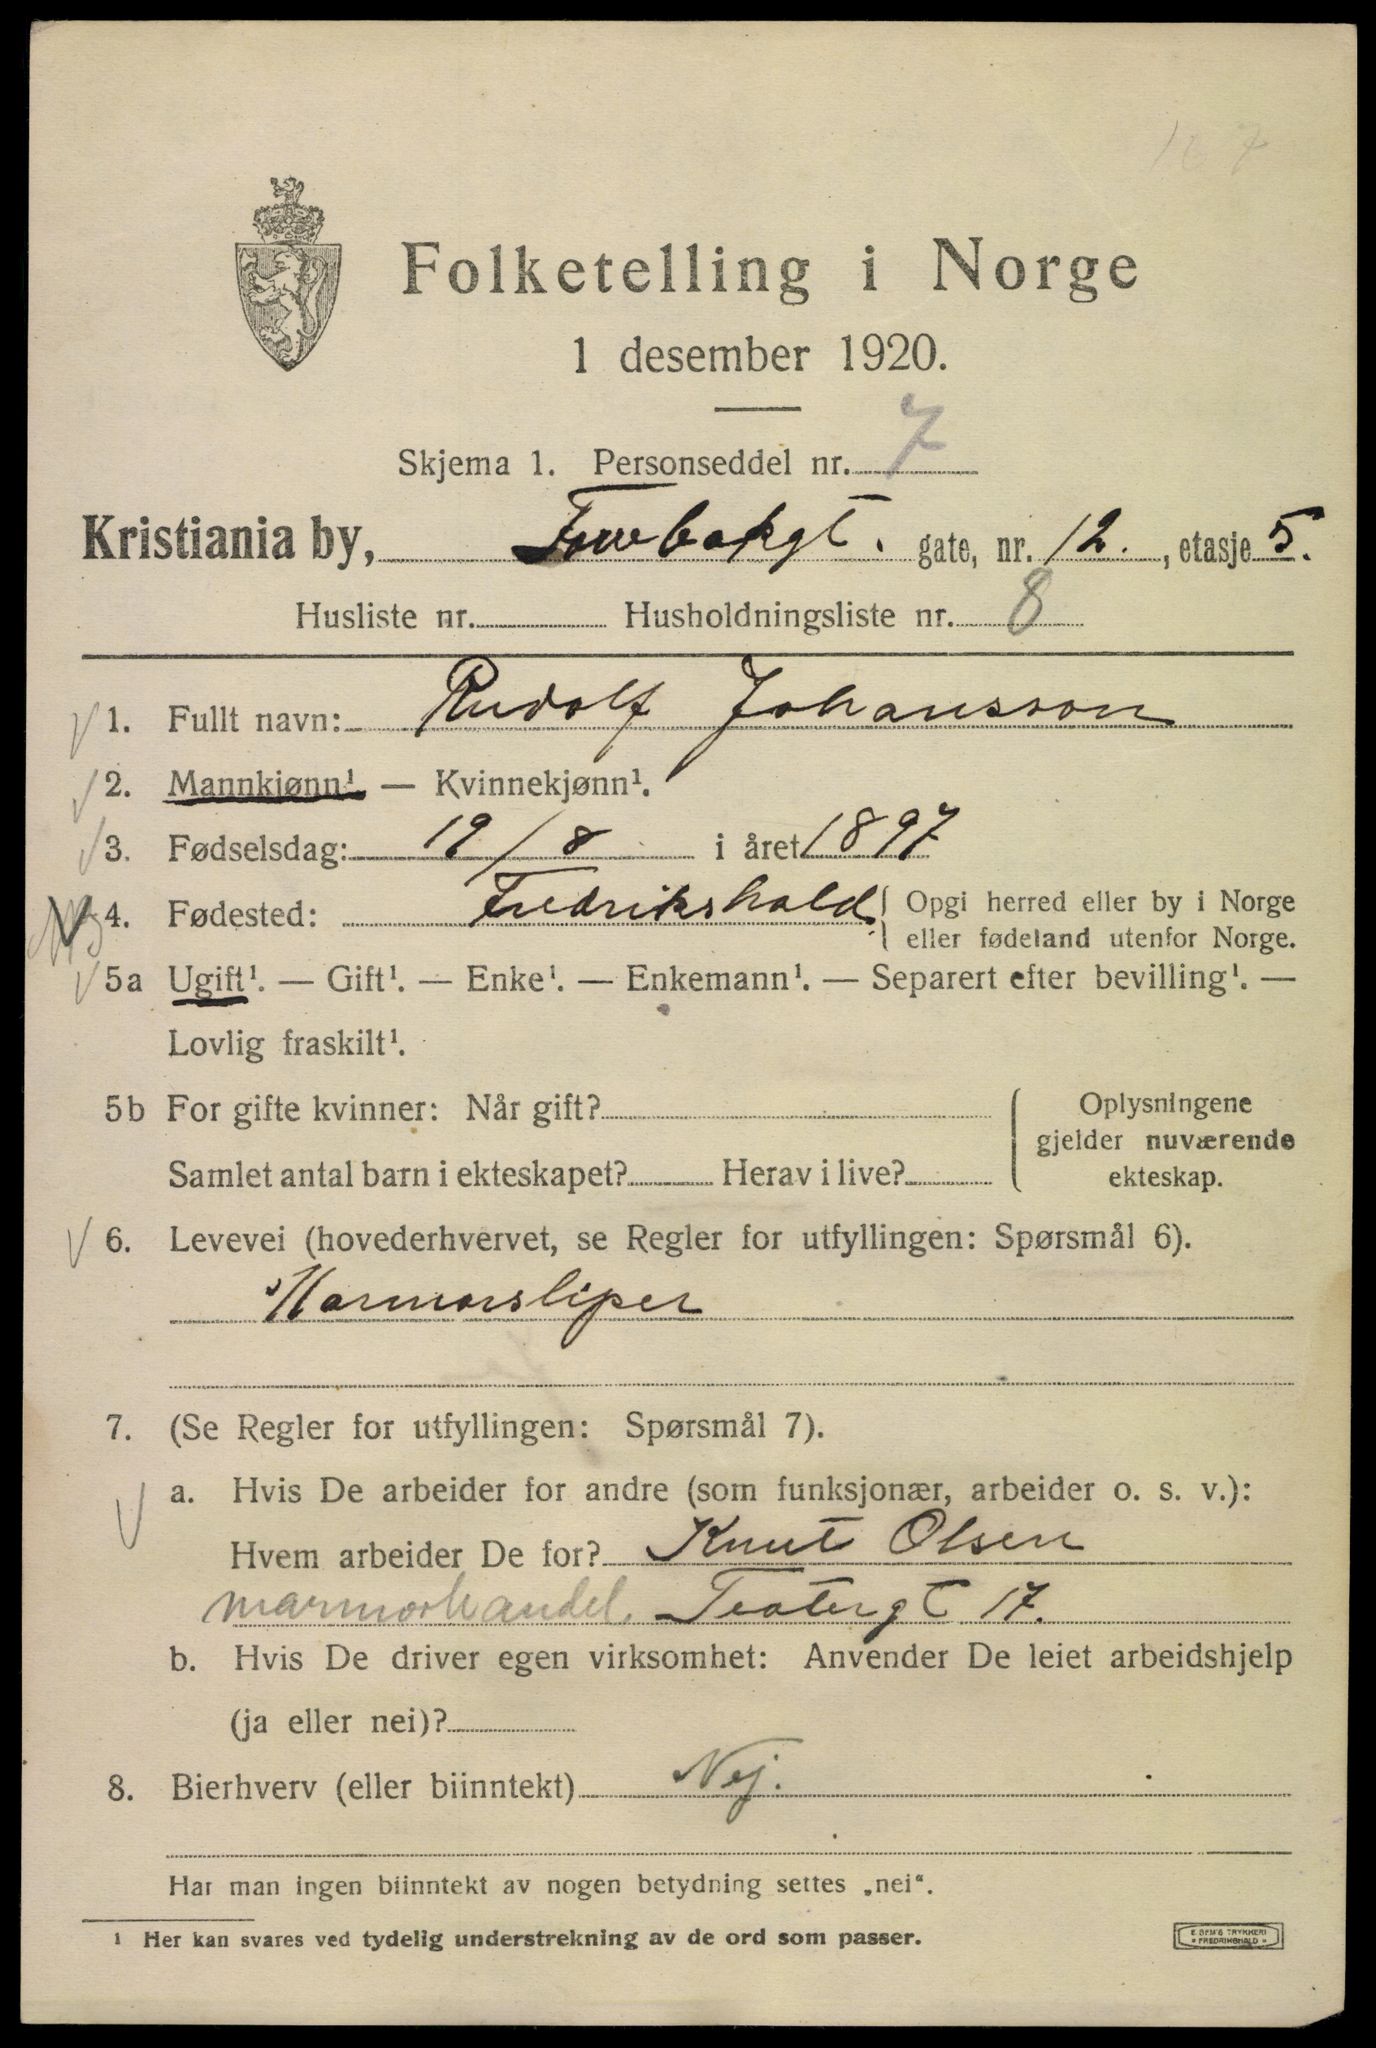 Folketelling i Norge
1 desember 1920.
Skjema 1. Personseddel nr. 7
Kristiania by, gate, nr. 12. , etasje 5.
Husliste nr. Husholdningsliste nr. 8
1. Fullt navn: Rudolf Johansson
2. Mannkjønn¹ — Kvinnekjønn¹.
3. Fødselsdag: 19/8 i året 1897
4. Fødested: Fredrikshald { Opgi herred eller by i Norge
eller fødeland utenfor Norge.
5a Ugift¹. — Gift¹. — Enke¹. — Enkemann¹. — Separert efter bevilling¹. —
Lovlig fraskilt¹.
5b For gifte kvinner: Når gift? Oplysningene
gjelder nuværende
Samlet antal barn i ekteskapet? Herav i live? ekteskap.
6. Levevei (hovederhvervet, se Regler for utfyllingen: Spørsmål 6).
Marmorsliper
7. (Se Regler for utfyllingen: Spørsmål 7).
a. Hvis De arbeider for andre (som funksjonær, arbeider o. s. v.):
Hvem arbeider De for? Knut Olsen
marmorhandel. Teatergt 17.
b. Hvis De driver egen virksomhet: Anvender De leiet arbeidshjelp
(ja eller nei)?
8. Bierhverv (eller biinntekt) Nej.
Har man ingen biinntekt av nogen betydning settes „nei“.
¹ Her kan svares ved tydelig understrekning av de ord som passer.
E. SEM'S TRYKKERI
FREDRIKSHALD